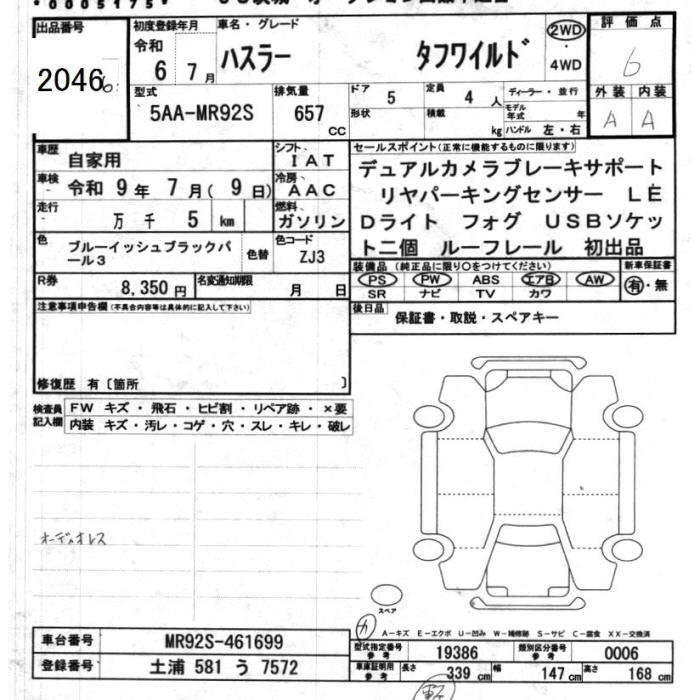 *0005175*
出品番号
2046
初度登録年月
令和
6 7月
車名・グレード
ハスラー タフワイルド
2WD
4WD
評価点
6
型式
5AA-MR92S
排気量
657
CC
ドア
5
形状
定員
4 人
積載
kg
ディーラー・並行
モデル年式 年
ハンドル 左・右
外装 内装
A A
車歴
自家用
シフト
IAT
車検
令和 9年 7月(9日)
冷房
AAC
走行
万 千 5 km
燃料
ガソリン
色
ブルーイッシュブラックパール3
色替
色コード
ZJ3
R券
8,350円
名変通知期限
月 日
セールスポイント(正常に機能するものに限ります)
デュアルカメラブレーキサポート
リヤパーキングセンサー LE
Dライト フォグ USBソケッ
ト二個 ルーフレール 初出品
装備品(純正品に限り○をつけてください)
PS PW ABS エアB AW
SR ナビ TV カワ
新車保証書
有・無
注意事項申告欄(不具合内容等は具体的に記入して下さい)
修復歴 有〔箇所 〕
後日品
保証書・取説・スペアキー
検査員記入欄
FW キズ・飛石・ヒビ割・リペア跡・×要
内装 キズ・汚レ・コゲ・穴・スレ・キレ・破レ
オーディオレス
スペア
A－キズ E－エクボ U－凹み W－補修跡 S－サビ C－腐食 XX－交換済
車台番号
MR92S-461699
登録番号
土浦 581 う 7572
型式指定番号
参考
19386
類別区分番号
参考
0006
車庫証明用
参考
長さ
339 cm
幅
147 cm
高さ
168 cm